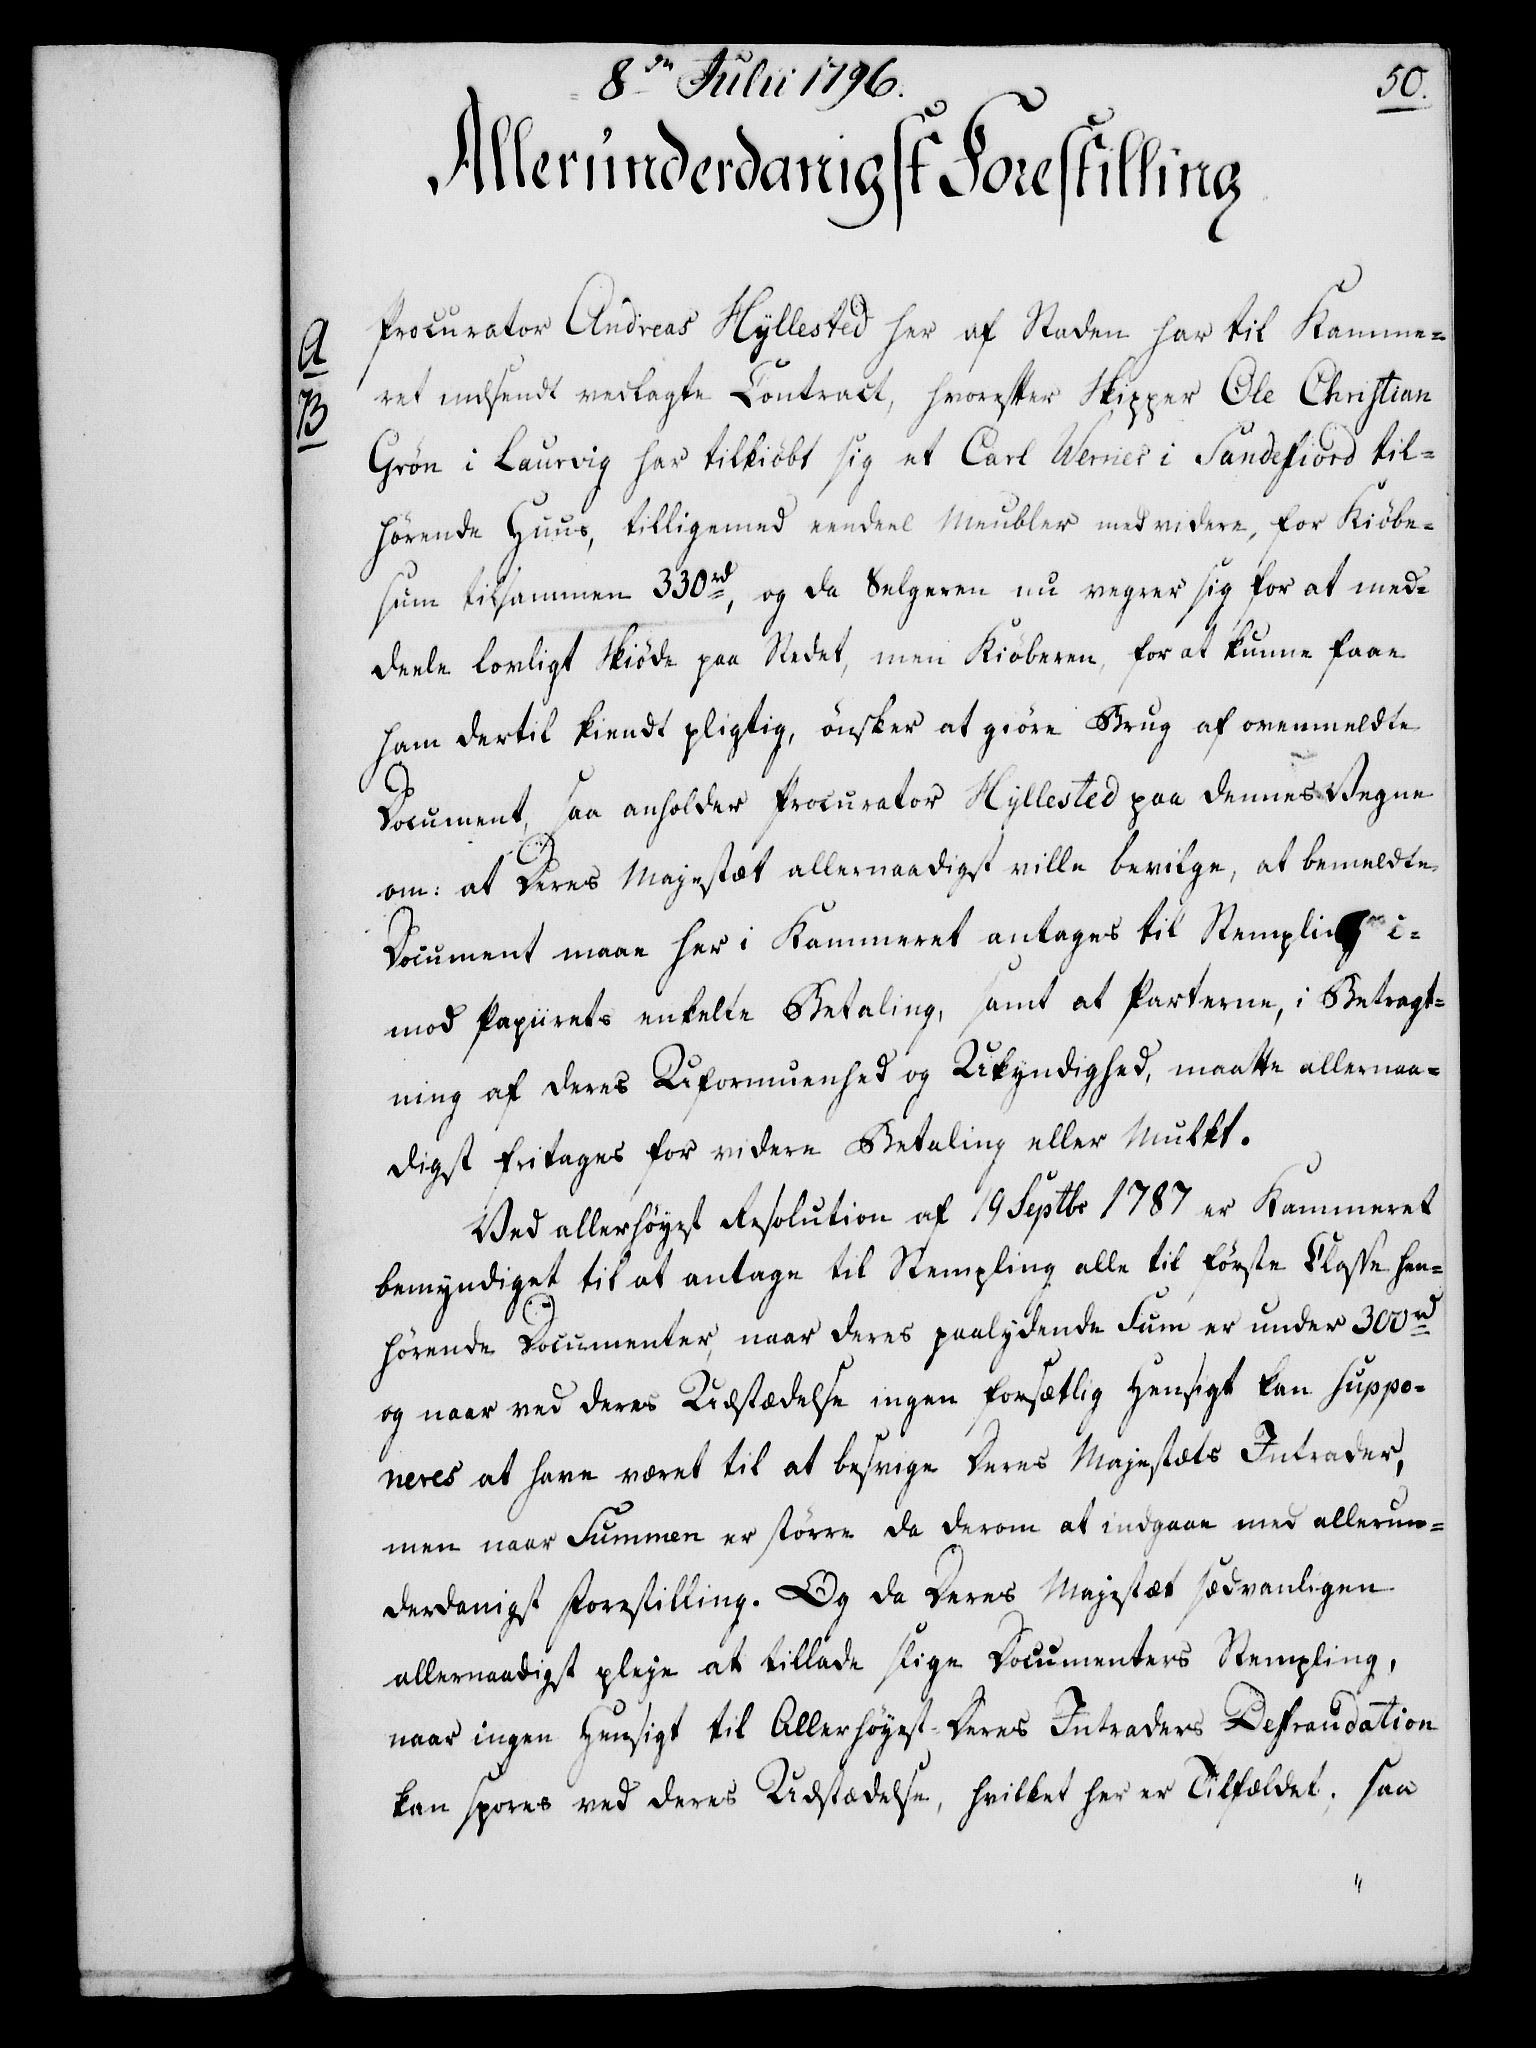 8de Julii 1796.
50.
Allerunderdanigst Forestilling
A
B
Procurator Andreas Hÿllested her af Staden har til Kamme=
ret indsendt vedlagte Contract, hvorefter Skipper Ole Christian
Grön i Laurvig har tilkiöbt sig et Carl Wernes i Sandefiord til=
hörende Huus, tilligemed eendeel Meubler med videre, for Kiöbe=
sum tilsammen 330rd, og da Selgeren nu vegrer sig for at med=
deele lovligt Skiöde paa Stedet, men Kiöberen, for at kunne faae
ham dertil kiendt pligtig, önsker at giöre Brug af ovenmeldte
Document, saa anholder Procurator Hÿllested paa dennes Vegne
om: at Deres Majestæt allernaadigst ville bevilge, at bemeldte
Document maae her i Kammeret antages til Stempling i=
mod Papiirets enkelte Betaling, samt at Parterne, i Betragt=
ning af deres Uformuenhed og Ukyndighed, maatte allernaa=
digst fritages for videre Betaling eller Mulkt.
Ved allerhöyest Resolution af 19 Septbr 1787 er Kammeret
bemyndiget til at antage til Stempling alle til förste Classe hen=
hörende Documenter, naar deres paalydende Sum er under 300rd
og naar ved deres Udstædelse ingen forsætlig Hensigt kan suppo=
neres at have været til at besvige Deres Majestæts Intrader,
men naar Summen er större da derom at indgaae med allerun=
derdanigst Forestilling. Og da Deres Majestæt sædvanligen
allernaadigst pleje at tillade slige Documenters Stempling,
naar ingen Hensigt til Allerhöyest-Deres Intraders Defraudation
kan spores ved deres Udstædelse, hvilket her er Tilfældet; saa
"